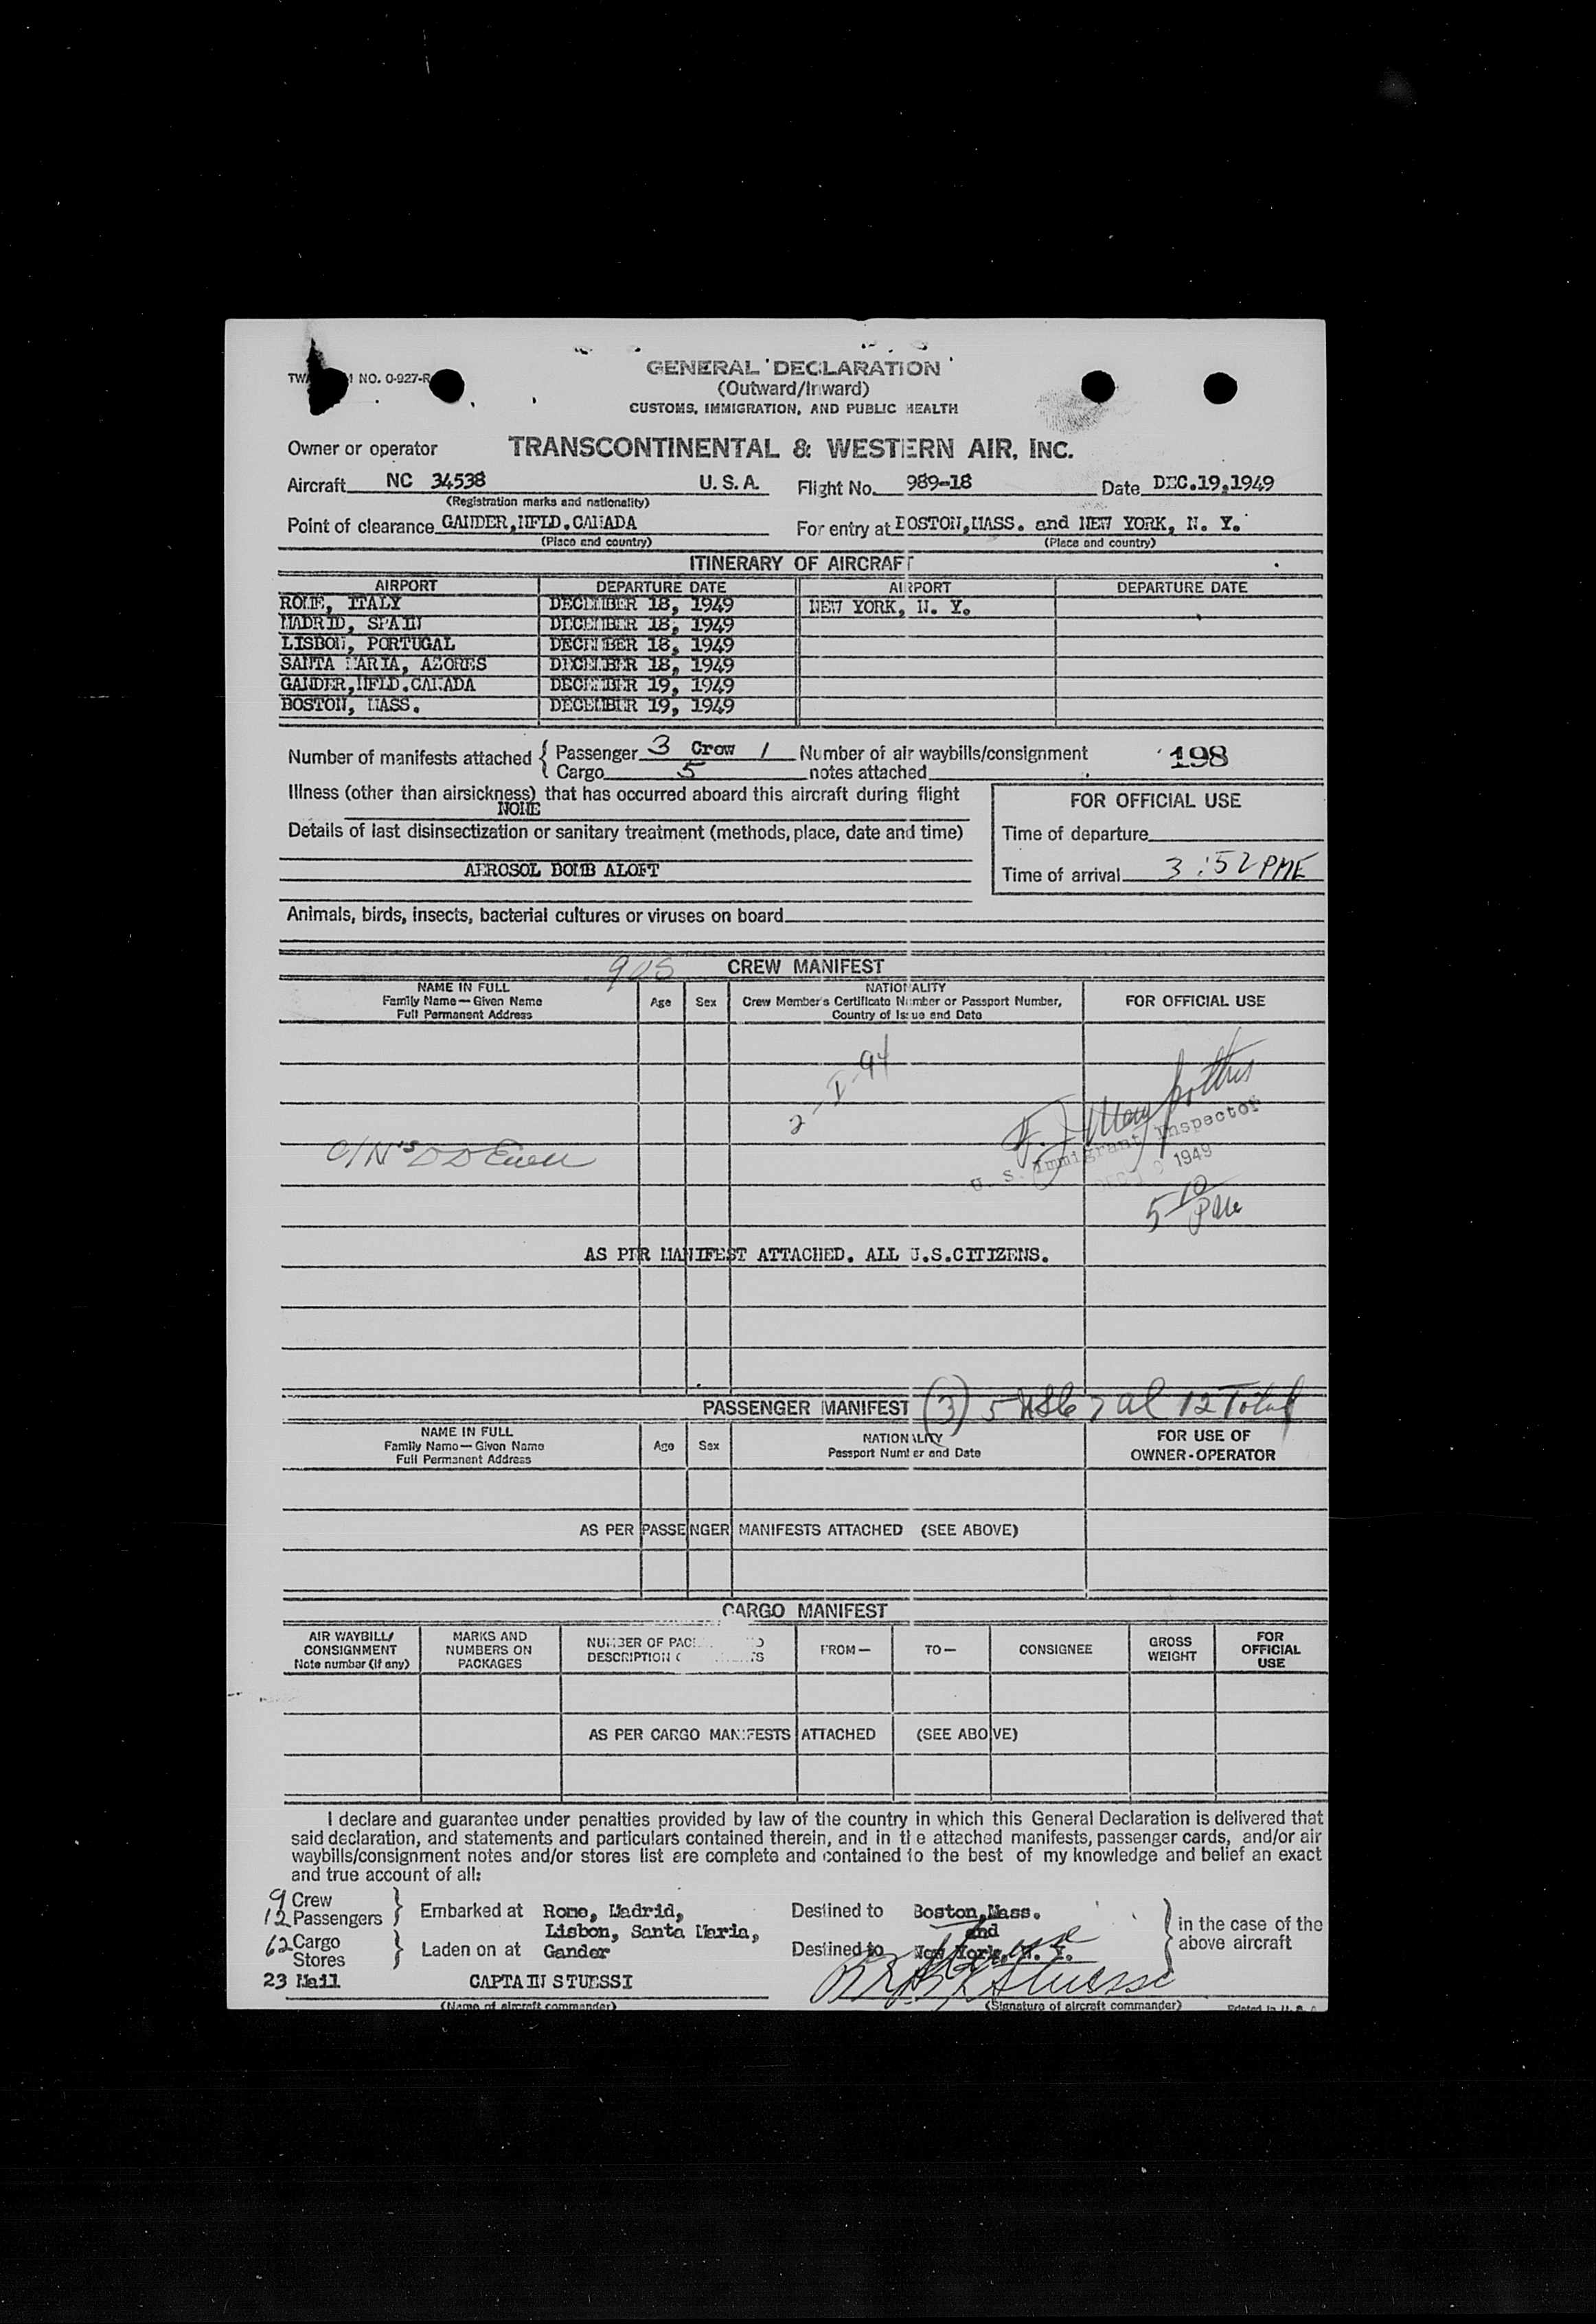 GENERAL DECLARATION
TW NO. 0-927-R
(Outward/Inward)
CUSTOMS, IMMIGRATION, AND PUBLIC HEALTH
Owner or operator TRANSCONTINENTAL & WESTERN AIR, INC.
Aircraft NC 34538 U. S. A. Flight No. 989-18 Date DEC.19,1949
(Registration marks and nationality)
Point of clearance GANDER,NFLD.CANADA For entry at BOSTON,MASS. and NEW YORK, N. Y.
(Place and country) (Place and country)
ITINERARY OF AIRCRAFT
AIRPORT DEPARTURE DATE AIRPORT DEPARTURE DATE
ROME, ITALY DECEMBER 18, 1949 NEW YORK, N. Y.
MADRID, SPAIN DECEMBER 18, 1949
LISBON, PORTUGAL DECEMBER 18, 1949
SANTA MARIA, AZORES DECEMBER 18, 1949
GANDER,NFLD.CANADA DECEMBER 19, 1949
BOSTON, MASS. DECEMBER 19, 1949
Number of manifests attached { Passenger 3 Crew 1 Number of air waybills/consignment 198
Cargo 5 notes attached
Illness (other than airsickness) that has occurred aboard this aircraft during flight
NONE
FOR OFFICIAL USE
Details of last disinsectization or sanitary treatment (methods, place, date and time)
Time of departure
AEROSOL BOMB ALOFT
Time of arrival 3:52 PME
Animals, birds, insects, bacterial cultures or viruses on board
9 US CREW MANIFEST
NAME IN FULL
Family Name—Given Name
Full Permanent Address
Age Sex
NATIONALITY
Crew Member's Certificate Number or Passport Number,
Country of Issue and Date
FOR OFFICIAL USE
2-I-94
U. S. Immigrant Inspector
DEC 1949
5 10 PM
AS PER MANIFEST ATTACHED. ALL U.S.CITIZENS.
PASSENGER MANIFEST (3) 5 USC 7 al 12 Total
NAME IN FULL
Family Name—Given Name
Full Permanent Address
Age Sex
NATIONALITY
Passport Number and Date
FOR USE OF
OWNER-OPERATOR
AS PER PASSENGER MANIFESTS ATTACHED (SEE ABOVE)
CARGO MANIFEST
AIR WAYBILL/
CONSIGNMENT
Note number (if any)
MARKS AND
NUMBERS ON
PACKAGES
NUMBER OF PAC
DESCRIPTION
FROM— TO— CONSIGNEE
GROSS
WEIGHT
FOR
OFFICIAL
USE
AS PER CARGO MANIFESTS ATTACHED (SEE ABOVE)
I declare and guarantee under penalties provided by law of the country in which this General Declaration is delivered that
said declaration, and statements and particulars contained therein, and in the attached manifests, passenger cards, and/or air
waybills/consignment notes and/or stores list are complete and contained to the best of my knowledge and belief an exact
and true account of all:
9 Crew
12 Passengers } Embarked at Rome, Madrid, Destined to Boston,Mass.
Lisbon, Santa Maria, and
62 Cargo
Stores } Laden on at Gander Destined to New York, N. Y.
in the case of the
above aircraft
23 Mail CAPTAIN STUESSI
(Name of aircraft commander) (Signature of aircraft commander) Printed in U. S. A.